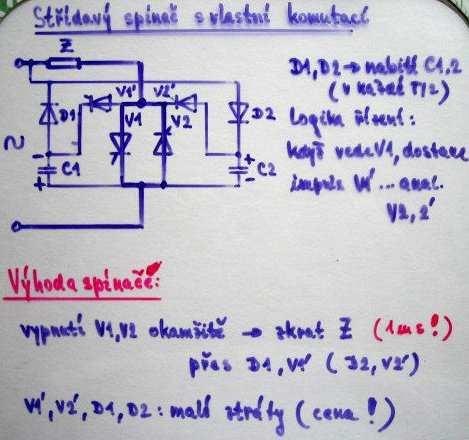 Střídavý spínač s vlastní komutací
Z
V1' V2'
D1 V1 V2 D2
~
- +
C1 C2
+ -
D1, D2 → nabití C1,2
(v každé T/2)
Logika řízení:
když vede V1, dostane
impuls V1' ... anal.
V2, 2'
Výhoda spínače:
vypnutí V1, V2 okamžitě → zkrat Z (1ms!)
přes D1, V1' (D2, V2')
V1', V2', D1, D2: malé ztráty (cena!)